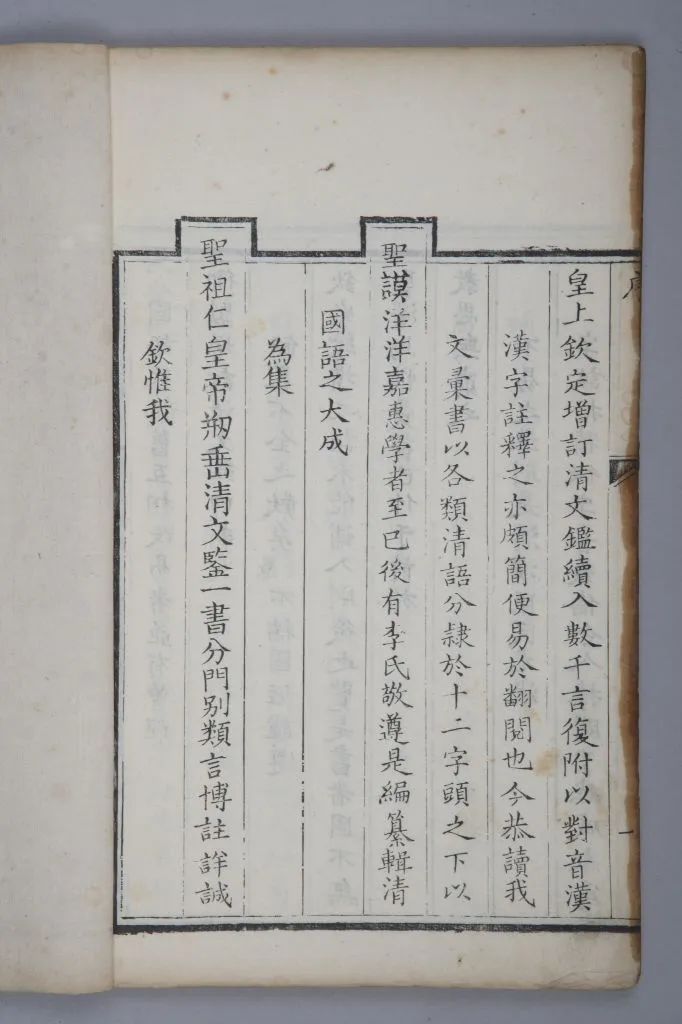 欽惟我
聖祖仁皇帝剏垂清文鋻一書分門別類言博註詳誠
為集
國語之大成
聖謨洋洋嘉惠學者至已後有李氏敬遵是編纂輯清
文彙書以各類清語分隸於十二字頭之下以
漢字註釋之亦頗簡便易於翻閱也今恭讀我
皇上欽定增訂清文鑑續入數千言復附以對音漢
一